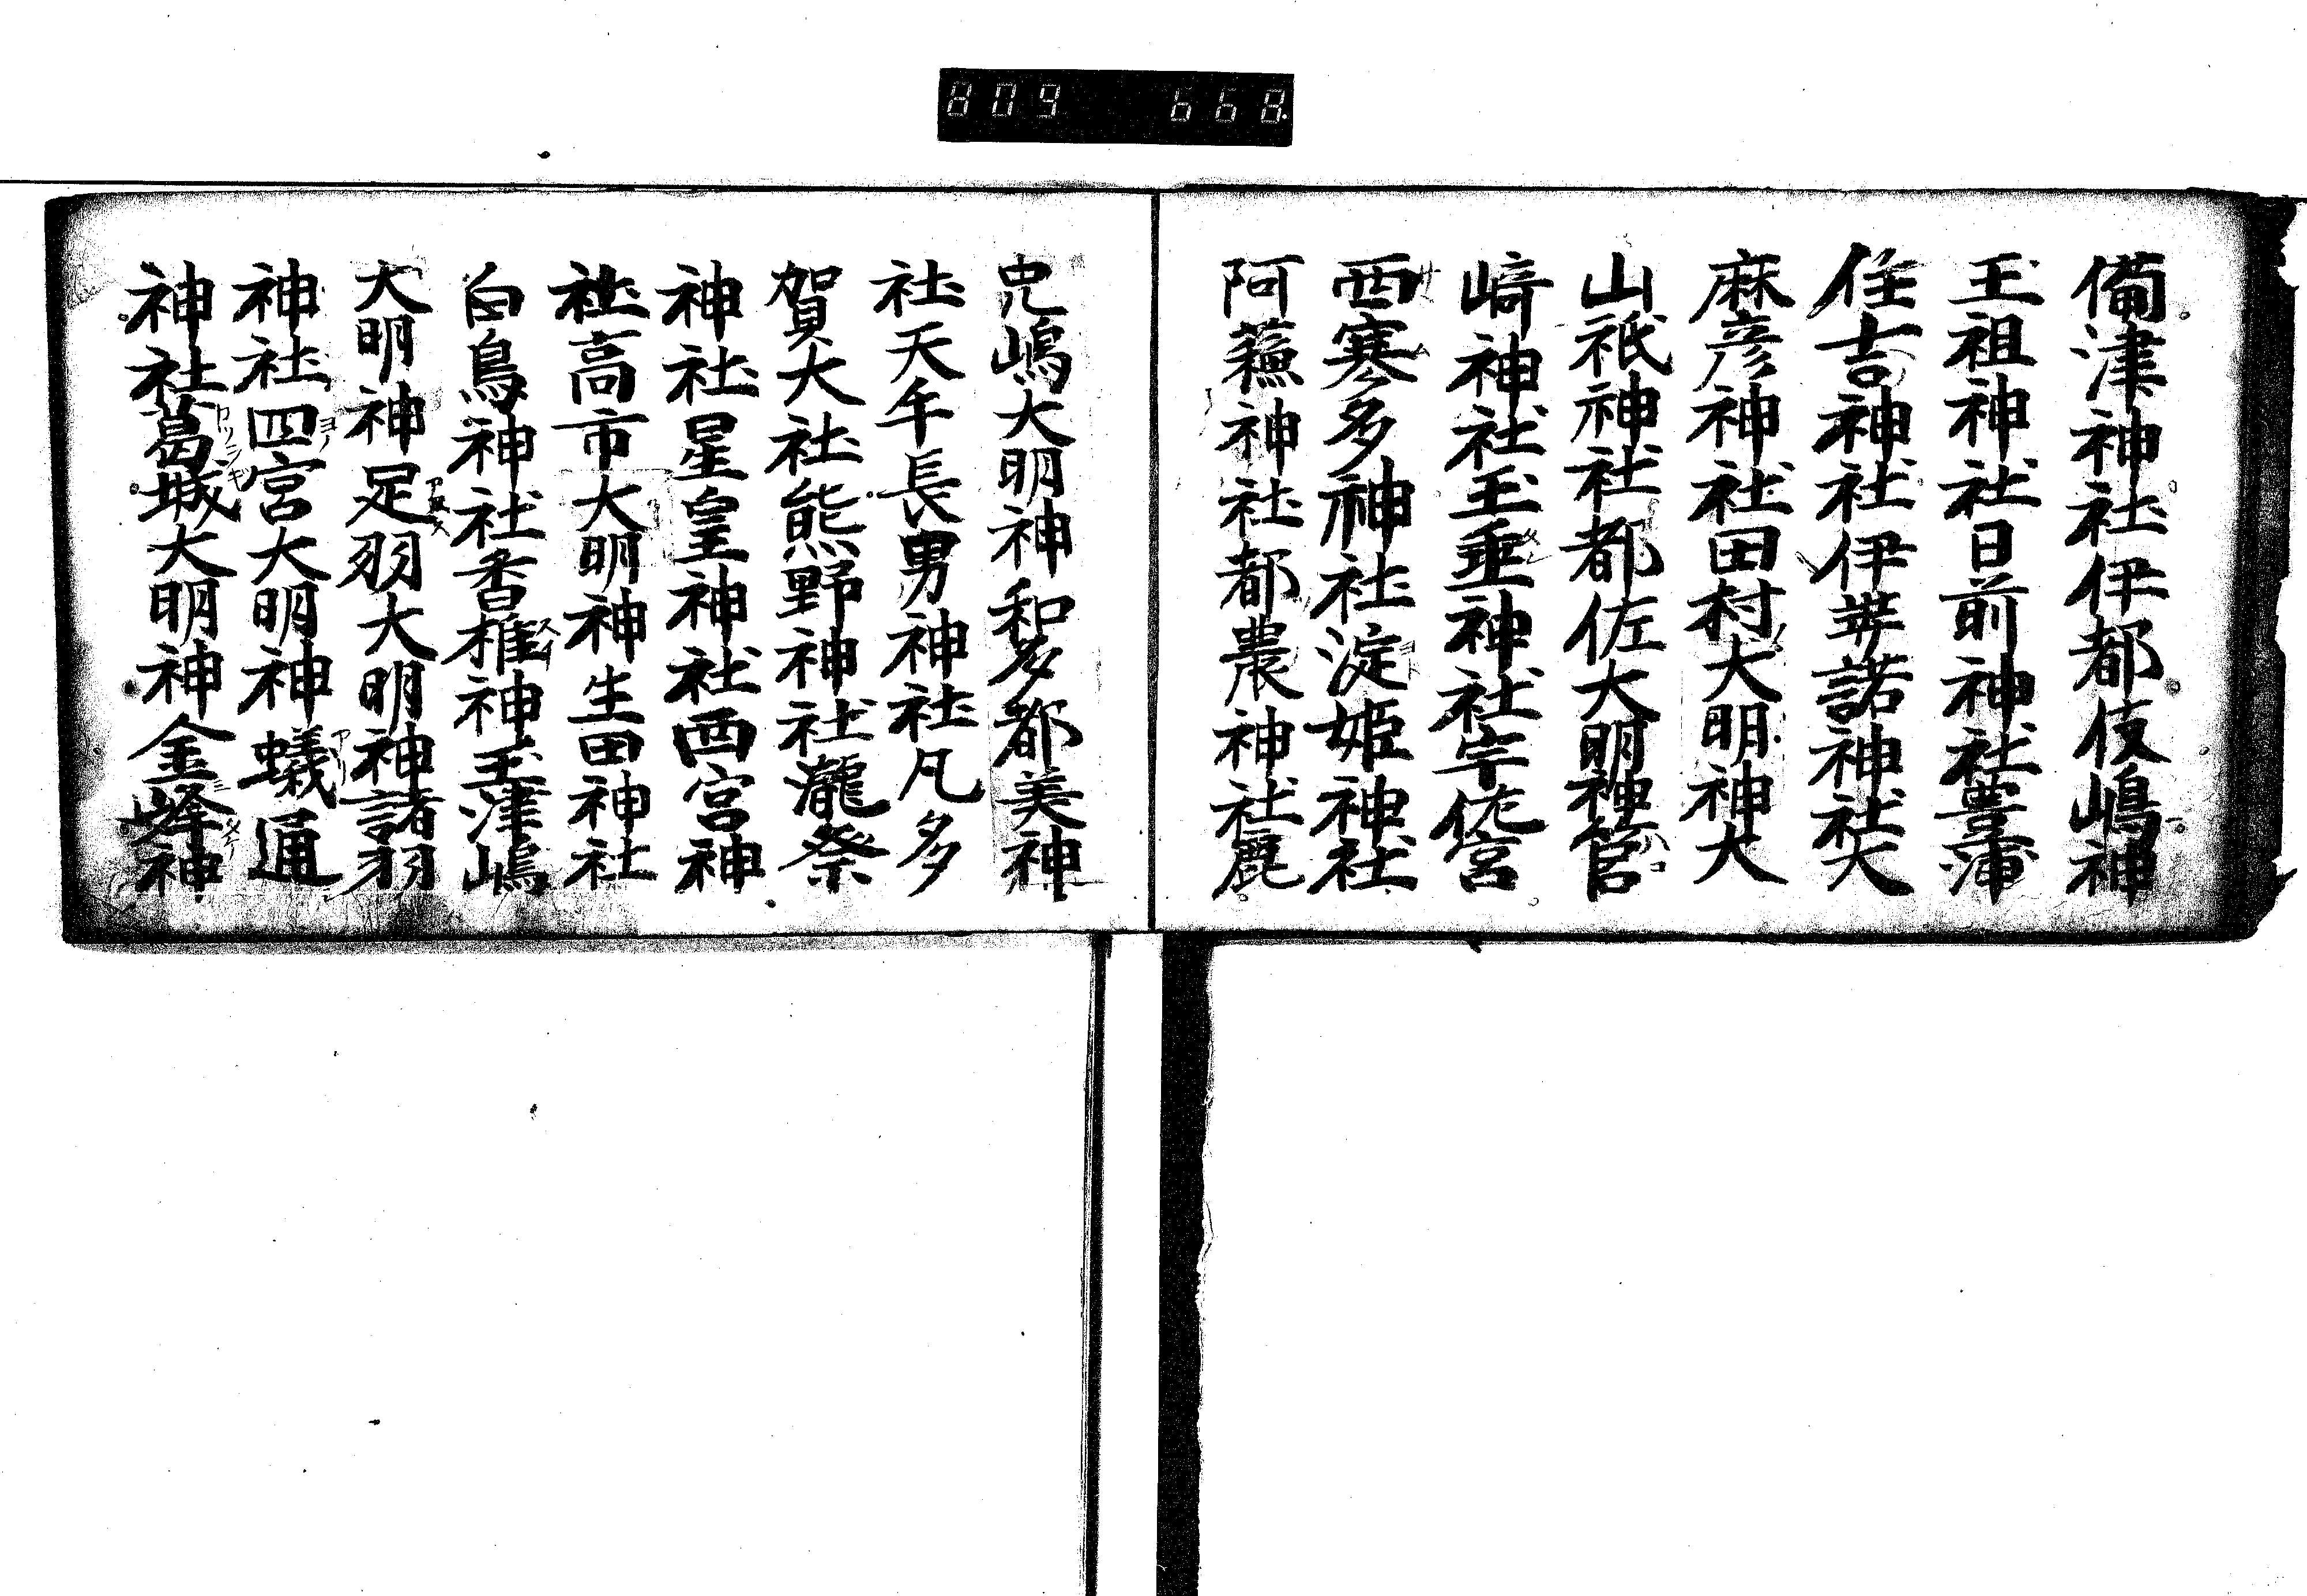 809 668
備津神社伊都伎嶋神
玉祖神社日前神社雲蒲
住吉神社伊弉諾神社大
麻彦神社田村大明神大
山祇神社都佐大明神管
崎神社玉垂神社宇佐宮
西寒多神社淀姫神社
阿蘓神社都農神社鹿
児嶋大明神和多都美神
社天手長男神社凡多
賀大社熊野神社瀧祭
神社星皇神社西宮神
社高市大明神生田神社
白鳥神社香椎神玉津嶋
大明神足羽大明神諸羽
神社四宮大明神蟻通
神社葛城大明神金峰神